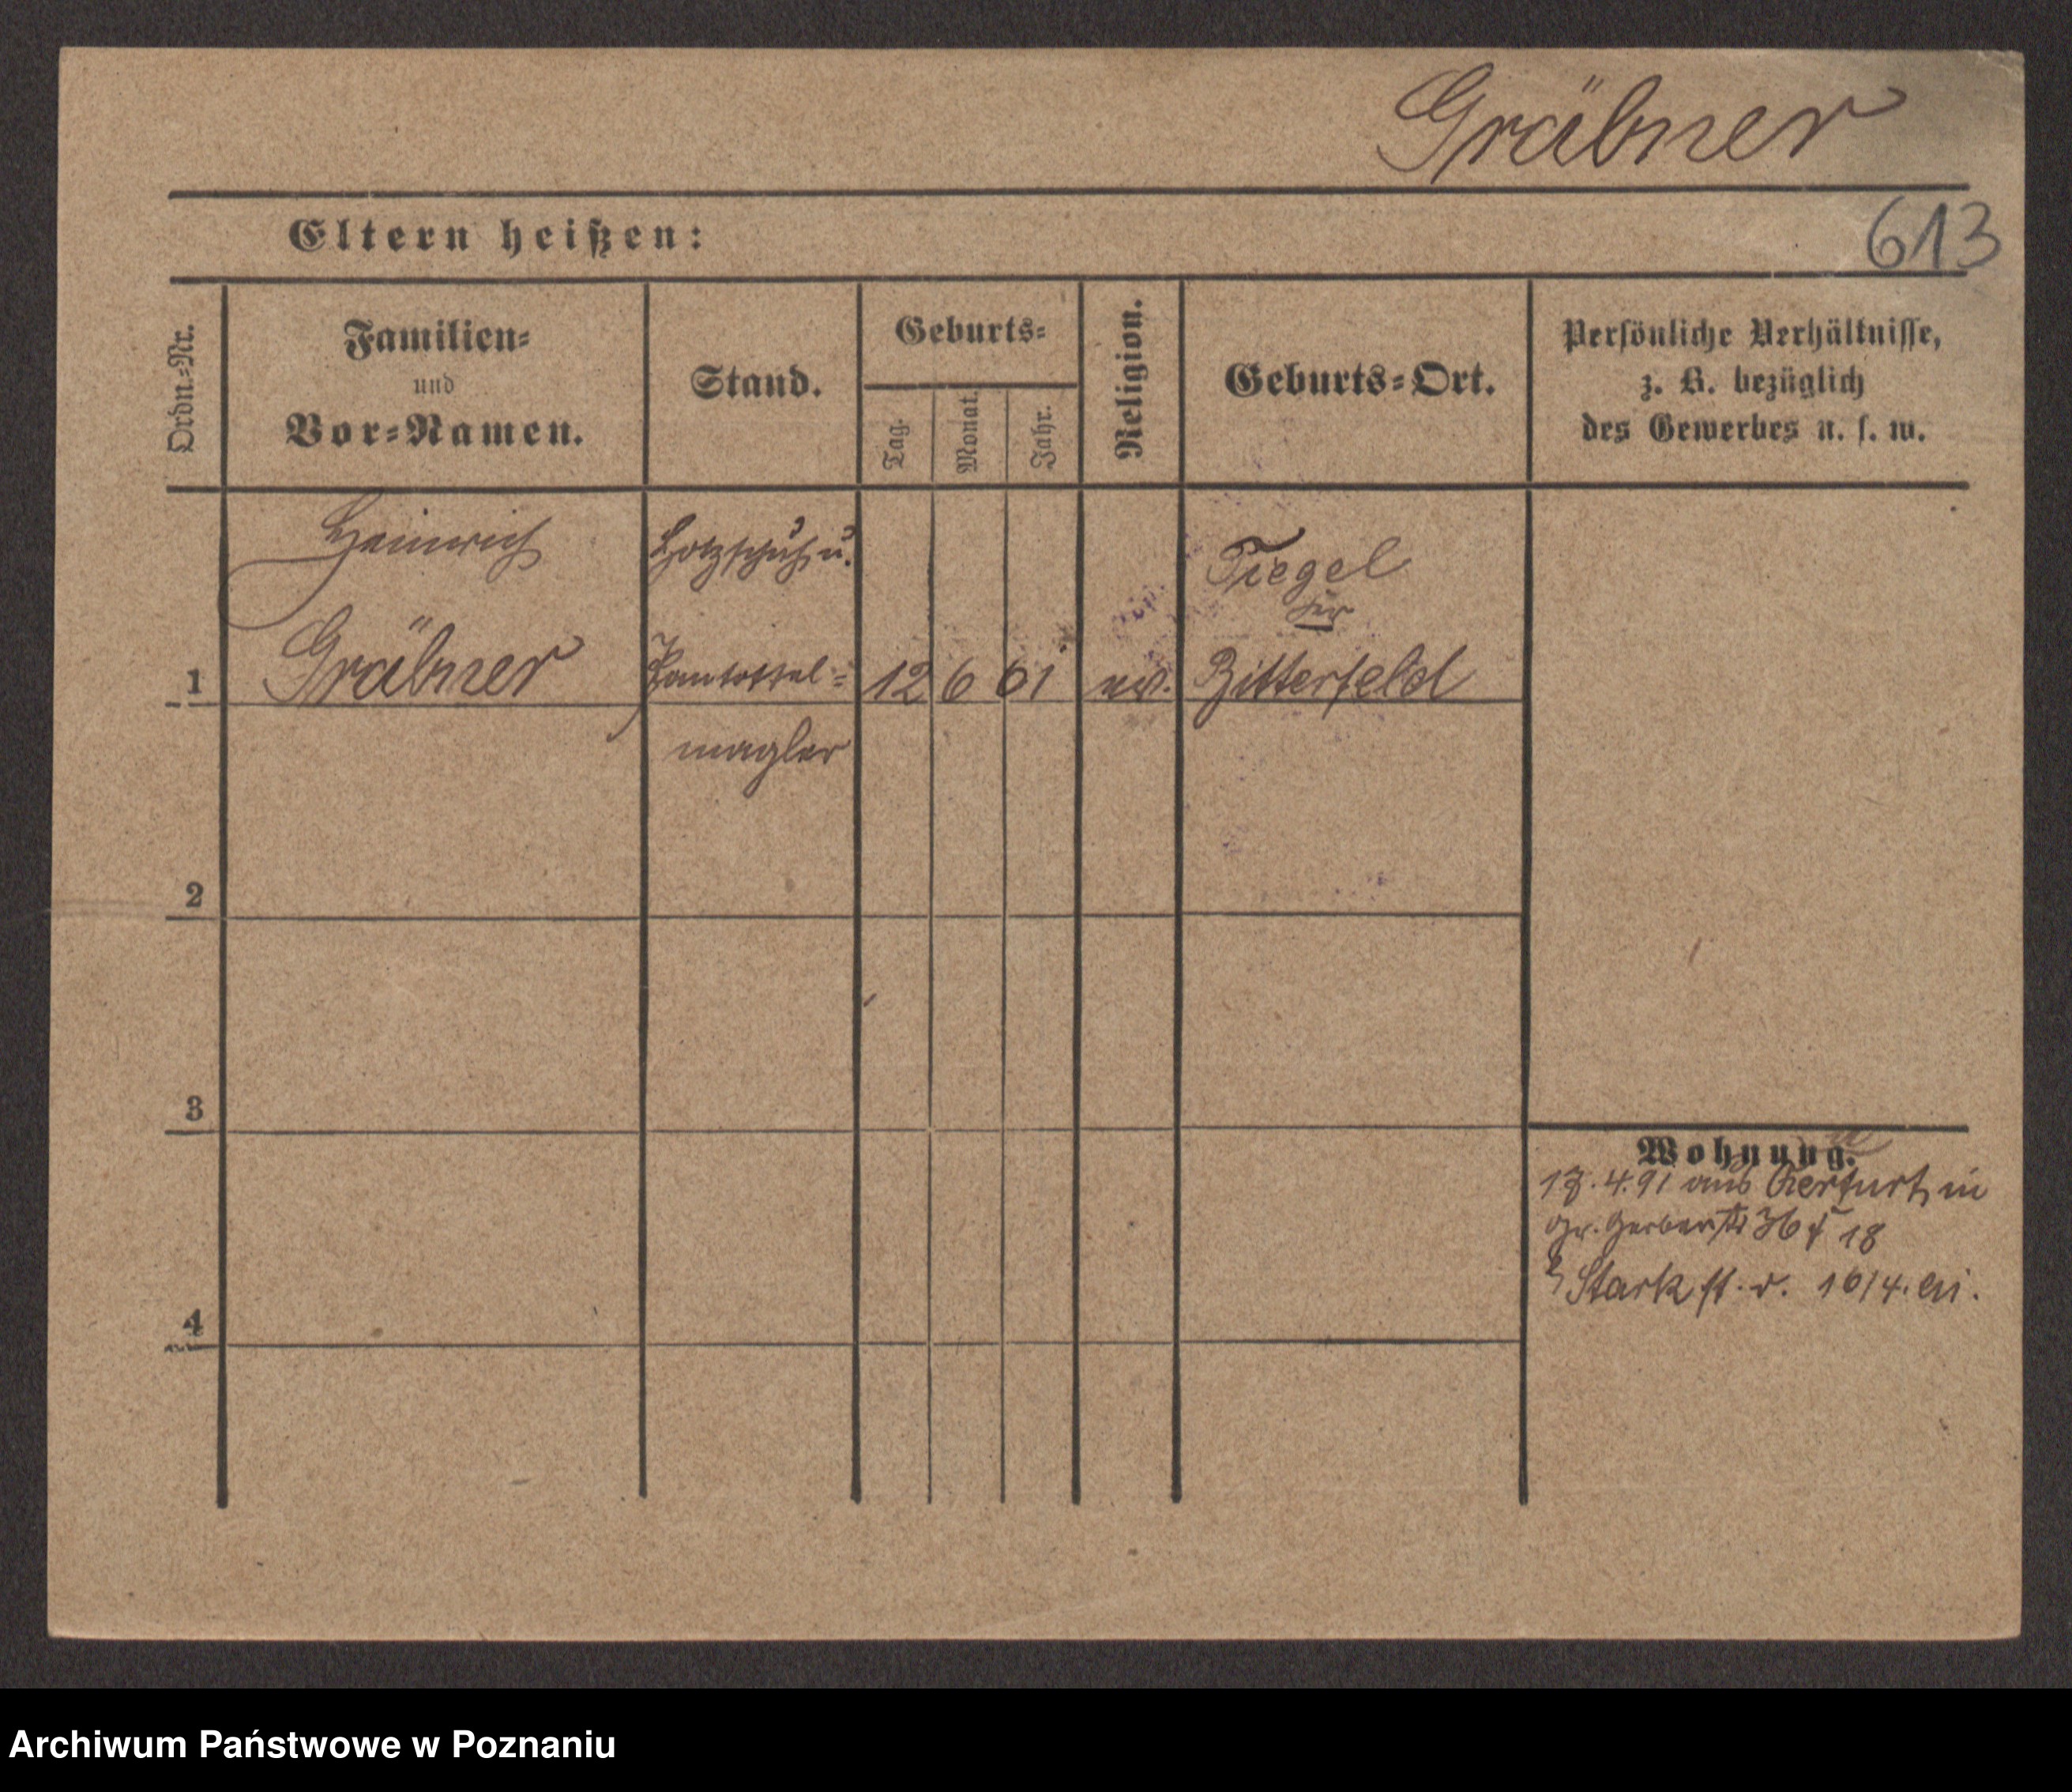 Gräbner
613
Eltern heißen:
Ordn.-Nr.
Familien-
und
Vor-Namen.
Stand.
Geburts-
Tag.
Monat.
Jahr.
Religion.
Geburts-Ort.
Persönliche Verhältnisse,
z. B. bezüglich
des Gewerbes u. s. w.
Heinrich
Gräbner
Holzschuh u.
Pantoffel-
1
12 6 61
ev.
Tiegel
Bitterfeld
2
3
4
Wohnung.
4.91 aus in
Gr. Gerberstr 36 18
Stark
Archiwum Państwowe w Poznaniu